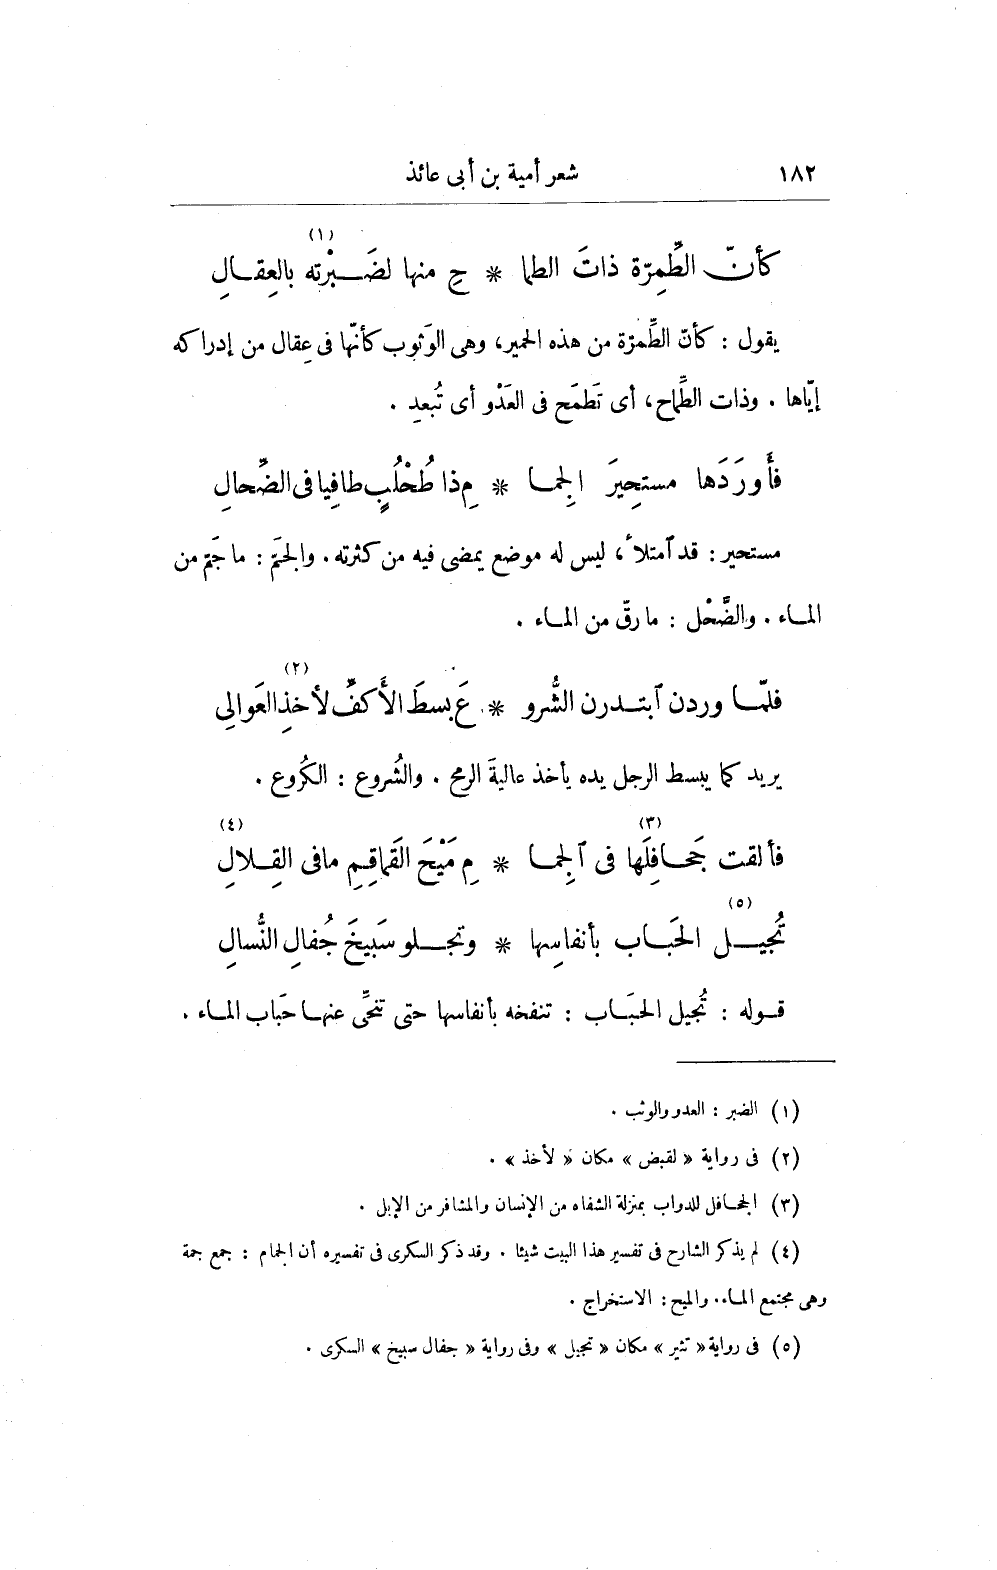 ١٨٢ شعر أمية بن أبى عائذ
كأنّ الطِّمِرّة ذاتَ الطما * حِ منها لضَـبْرته بالعِقـالِ (١)
يقول : كأنّ الطِّمرّة من هذه الحمير، وهى الوَثوب كأنّها فى عِقال من إدراكه
إيّاها . وذات الطِّماح، أى تَطمَح فى العَدْو أى تُبعِد .
فأَورَدَها مستحِيرَ الجِمـا * مِ ذا طُحْلُبٍ طافِيا فى الضِّحالِ
مستحير : قد آمتلأ، ليس له موضع يمضى فيه من كثرته . والجَمّ : ما جَمّ من
المـاء . والضَّحْل : ما رقّ من المـاء .
فلمّـا وردن ٱبتـدرن الشُّرو * عَ بسطَ الأَكفِّ لأخذِ العَوالى (٢)
يريد كما يبسط الرجل يده يأخذ عاليةَ الرمح . والشُروع : الكُروع .
فألقت جَحـافِلَها (٣) فى ٱلجِمـا * مِ مَيْحَ القَماقِـمِ مافى القِـلالِ (٤)
تُجيـل (٥) الحَبَـاب بأنفاسِها * وتجـلو سَبِيخَ جُفالِ النُّسالِ
قـوله : تُجيل الحبَـاب : تنفخه بأنفاسها حتى تنحِّى عنهـا حَباب المـاء .
(١) الضبر : العدو والوثب .
(٢) فى رواية « لقبض » مكان « لأخذ » .
(٣) الجحـافل للدواب بمنزلة الشفاه من الإنسان والمشافر من الإبل .
(٤) لم يذكر الشارح فى تفسير هذا البيت شيئا . وقد ذكر السكرى فى تفسيره أن الجمام : جمع جمة
وهى مجتمع المـاء. والميح : الاستخراج .
(٥) فى رواية « تثير » مكان « تجيل » وفى رواية « جفال سبيخ » السكرى .